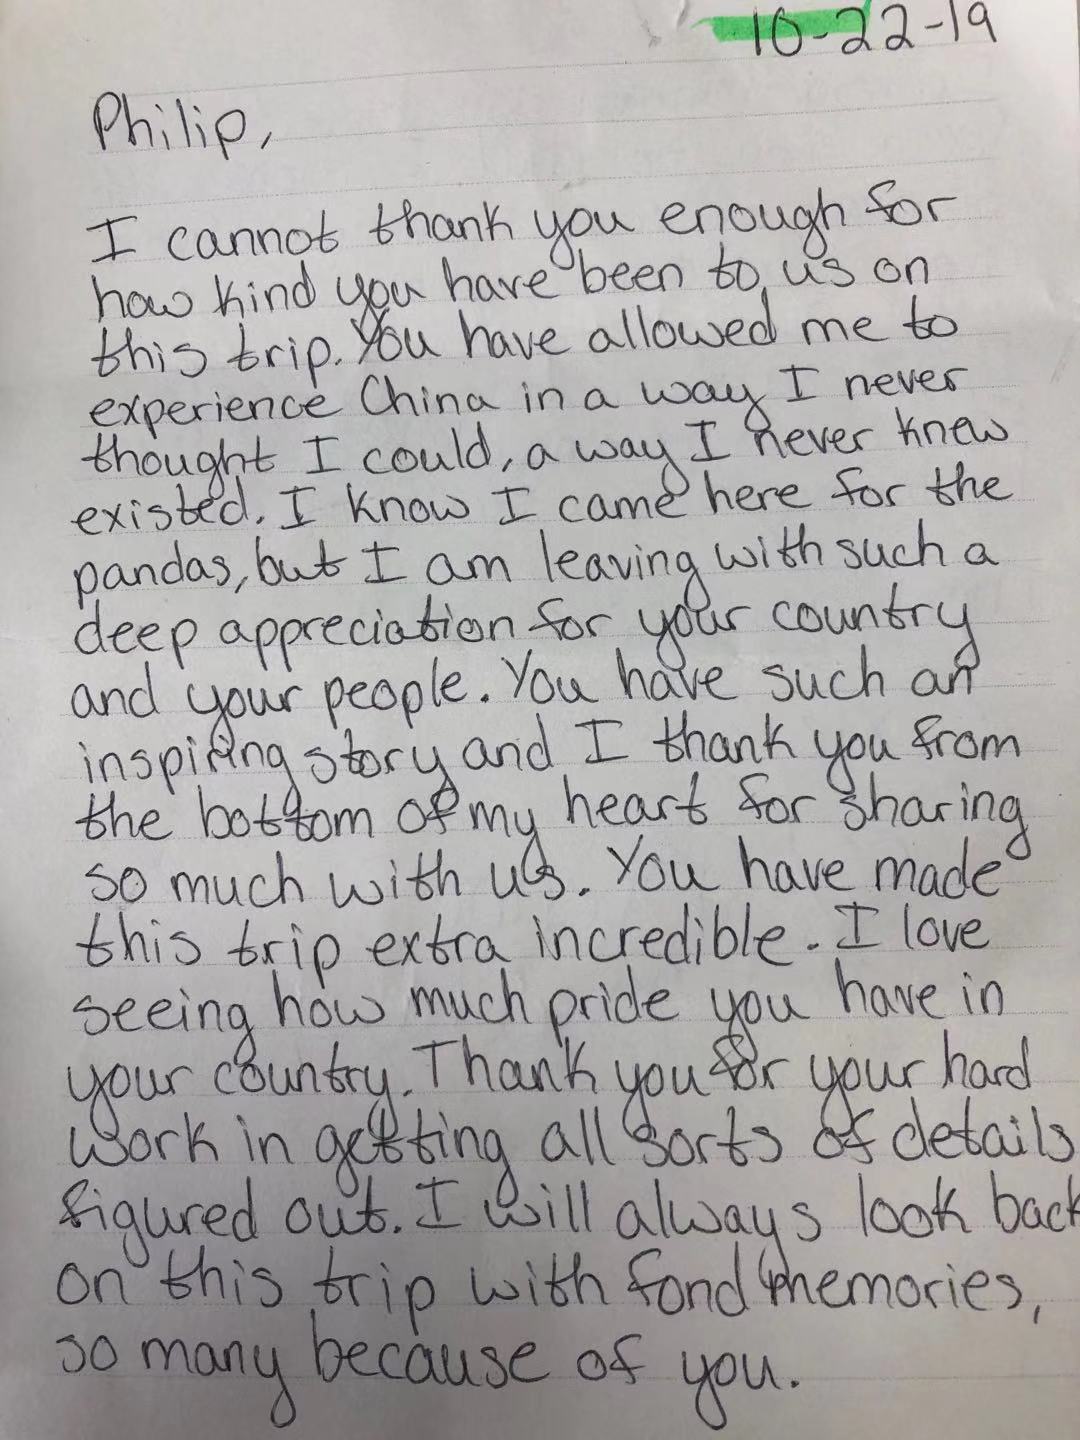 10-22-19
Philip,
I cannot thank you enough for
how kind you have been to us on
this trip. You have allowed me to
experience China in a way I never
thought I could, a way I never knew
existed. I know I came here for the
pandas, but I am leaving with such a
deep appreciation for your country
and your people. You have such an
inspiring story and I thank you from
the bottom of my heart for sharing
so much with us. You have made
this trip extra incredible. I love
seeing how much pride you have in
your country. Thank you for your hard
work in getting all sorts of details
figured out. I will always look back
on this trip with fond memories,
so many because of you.